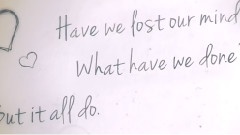 Have we lost our mind
What have we done
but it all do.